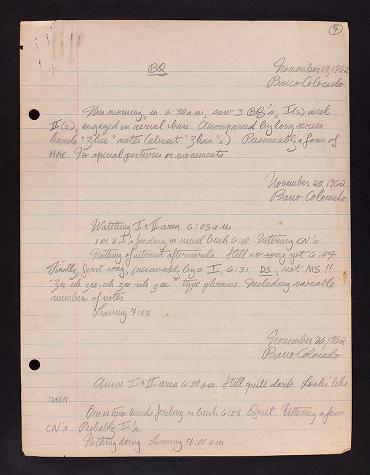 (4)
BQ
November 19, 1962
Barro Colorado
This morning, ca. 6:30 a.m., saw 3 BQ's, I(s) and
II(s), engaged in aerial chase. Accompanied by long series
harsh notes (almost ). Presumably a form of
HAC. No special postures or movements
November 20, 1962
Barro Colorado
Watching I & II area 6:05 a.m.
1 or 2 I's feeding in usual bush 6:10. Uttering CN's
Nothing of interest afterwards. Still no song yet 6:29
Finally, first song, presumably by a I, 6:31. DS, not MS !!
"zee-uh zee-uh zee-uh zee" type phrases. Including variable
number of notes
Leaving 7:03
November 26, 1962
Barro Colorado
Arrive I & II area 6:00 a.m. Still quite dark. Looks like
rain.
One or two birds feeding in bush 6:05 Quiet. Uttering a few
CN's. Probably I's.
Nothing doing. Leaving 7:00 a.m.